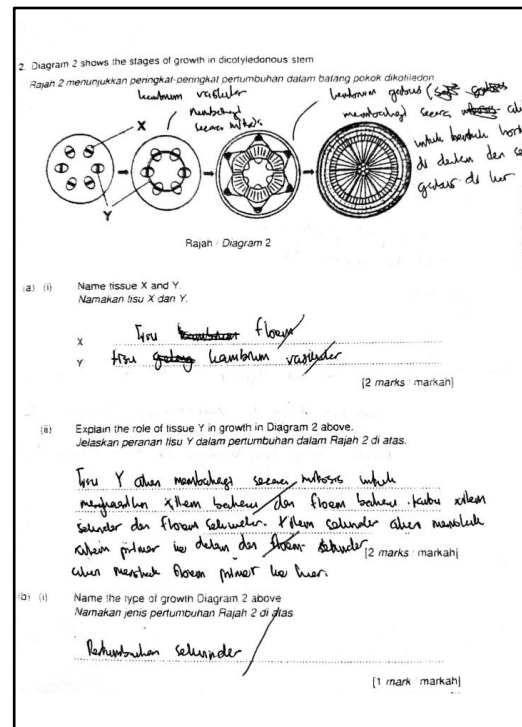 2. Diagram 2 shows the stages of growth in dicotyledonous stem
Rajah 2 menunjukkan peringkat-peringkat pertumbuhan dalam batang pokok dikotiledon.
kambium vaskular
membahagi
secara mitosis
kambium gabus (
membahagi secara
untuk bentuk
di dalam dan
gabus di luar
X
Y
Rajah / Diagram 2
(a) (i) Name tissue X and Y.
Namakan tisu X dan Y.
X Tisu floem
Y tisu kambium vaskular
[2 marks / markah]
(ii) Explain the role of tissue Y in growth in Diagram 2 above.
Jelaskan peranan tisu Y dalam pertumbuhan dalam Rajah 2 di atas.
Tisu Y akan membahagi secara mitosis untuk
menghasilkan xilem baharu dan floem baharu. xilem
sekunder dan floem sekunder. Xilem sekunder akan menolak
xilem primer ke dalam dan floem sekunder
[2 marks / markah]
akan menolak floem primer ke luar.
(b) (i) Name the type of growth Diagram 2 above
Namakan jenis pertumbuhan Rajah 2 di atas
Pertumbuhan sekunder
[1 mark / markah]